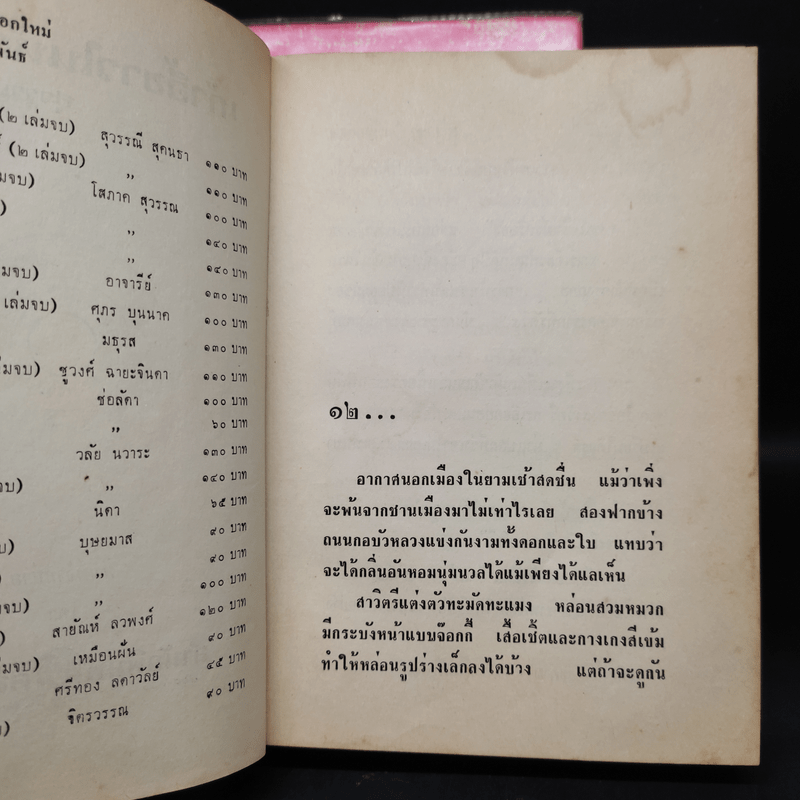 อกใหม่
พันธ์
(๒ เล่มจบ) สุวรรณี สุคนธา ๑๑๐ บาท
(๒ เล่มจบ) ,, ๑๑๐ บาท
มจบ) โสภาค สุวรรณ ๑๐๐ บาท
) ,, ๑๔๐ บาท
,, ๑๔๐ บาท
มจบ) อาจารีย์ ๑๓๐ บาท
เล่มจบ) ศุภร บุนนาค ๑๐๐ บาท
มธุรส ๑๓๐ บาท
มจบ) ชูวงศ์ ฉายะจินดา ๑๑๐ บาท
ช่อลัดา ๑๐๐ บาท
,, ๖๐ บาท
วลัย นวาระ ๑๓๐ บาท
บ) ,, ๑๔๐ บาท
นิดา ๖๕ บาท
บุษยมาส ๙๐ บาท
,, ๙๐ บาท
,, ๑๐๐ บาท
มจบ) สายัณห์ ลวพงศ์ ๑๒๐ บาท
เหมือนฝั่น ๙๐ บาท
มจบ) ศรีทอง ลดาวัลย์ ๔๕ บาท
จิตรวรรณ ๙๐ บาท
๑๒...
อากาศนอกเมืองในยามเช้าสดชื่น แม้ว่าเพิ่ง
จะพ้นจากชานเมืองมาไม่เท่าไรเลย สองฟากข้าง
ถนนกอบัวหลวงแข่งกันงามทั้งดอกและใบ แทบว่า
จะได้กลิ่นอันหอมนุ่มนวลได้แม้เพียงได้แลเห็น
สาวิตรีแต่งตัวทะมัดทะแมง หล่อนสวมหมวก
มีกระบังหน้าแบบจ๊อกกี้ เสื้อเชิ้ตและกางเกงสีเข้ม
ทำให้หล่อนรูปร่างเล็กลงได้บ้วง แต่ถ้าจะดูกัน